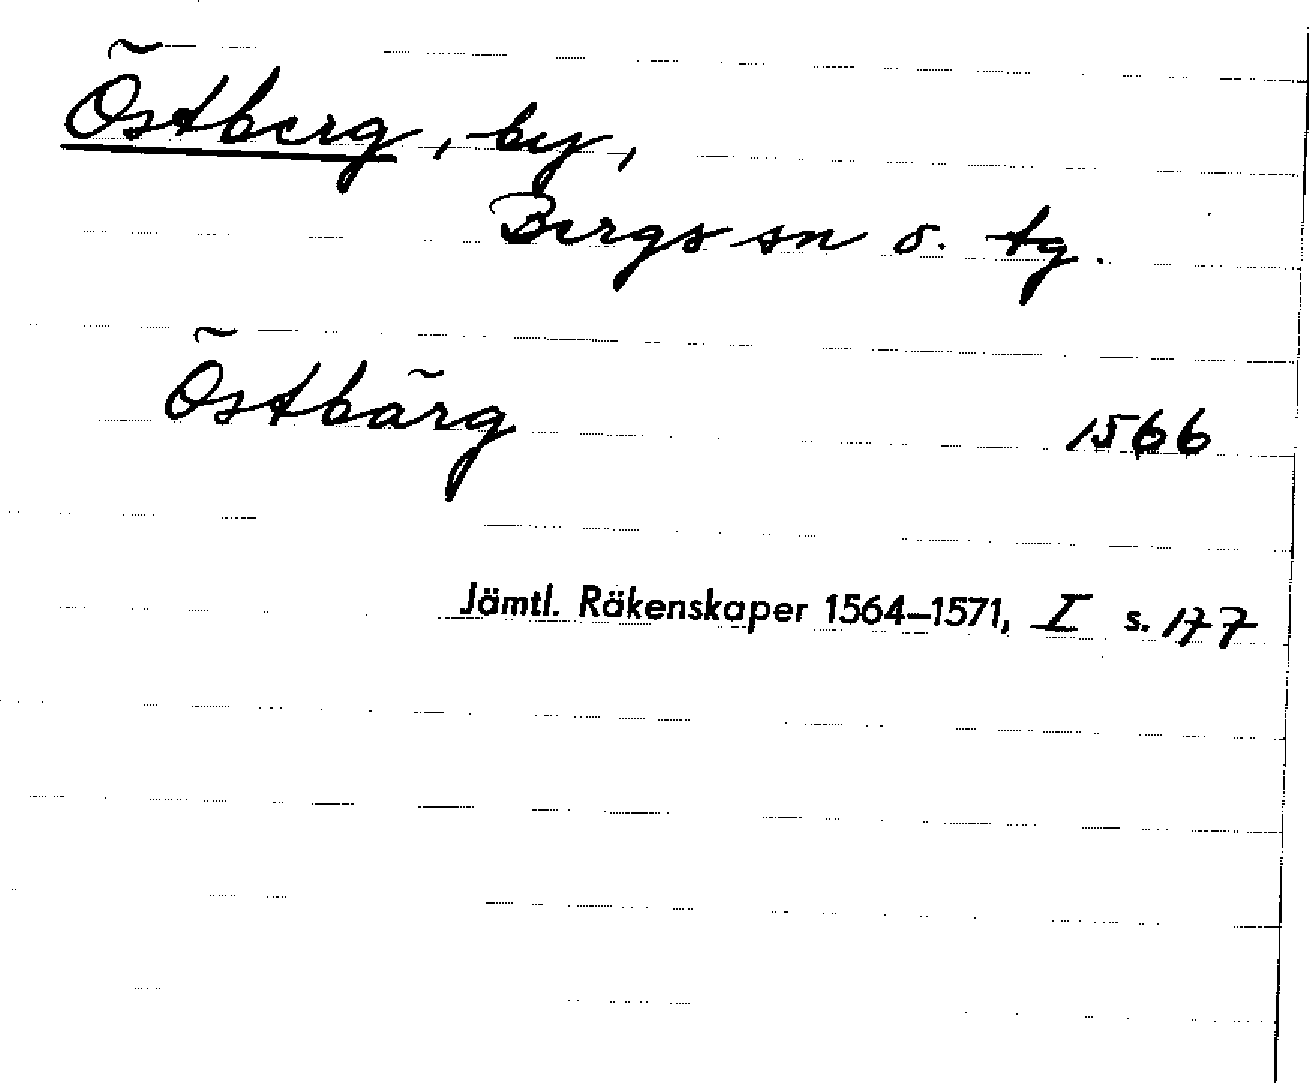 Östberg, by,
Bergs sn o. tg.
Östbärg 1566
Jämtl. Räkenskaper 1564–1571, I s. 177